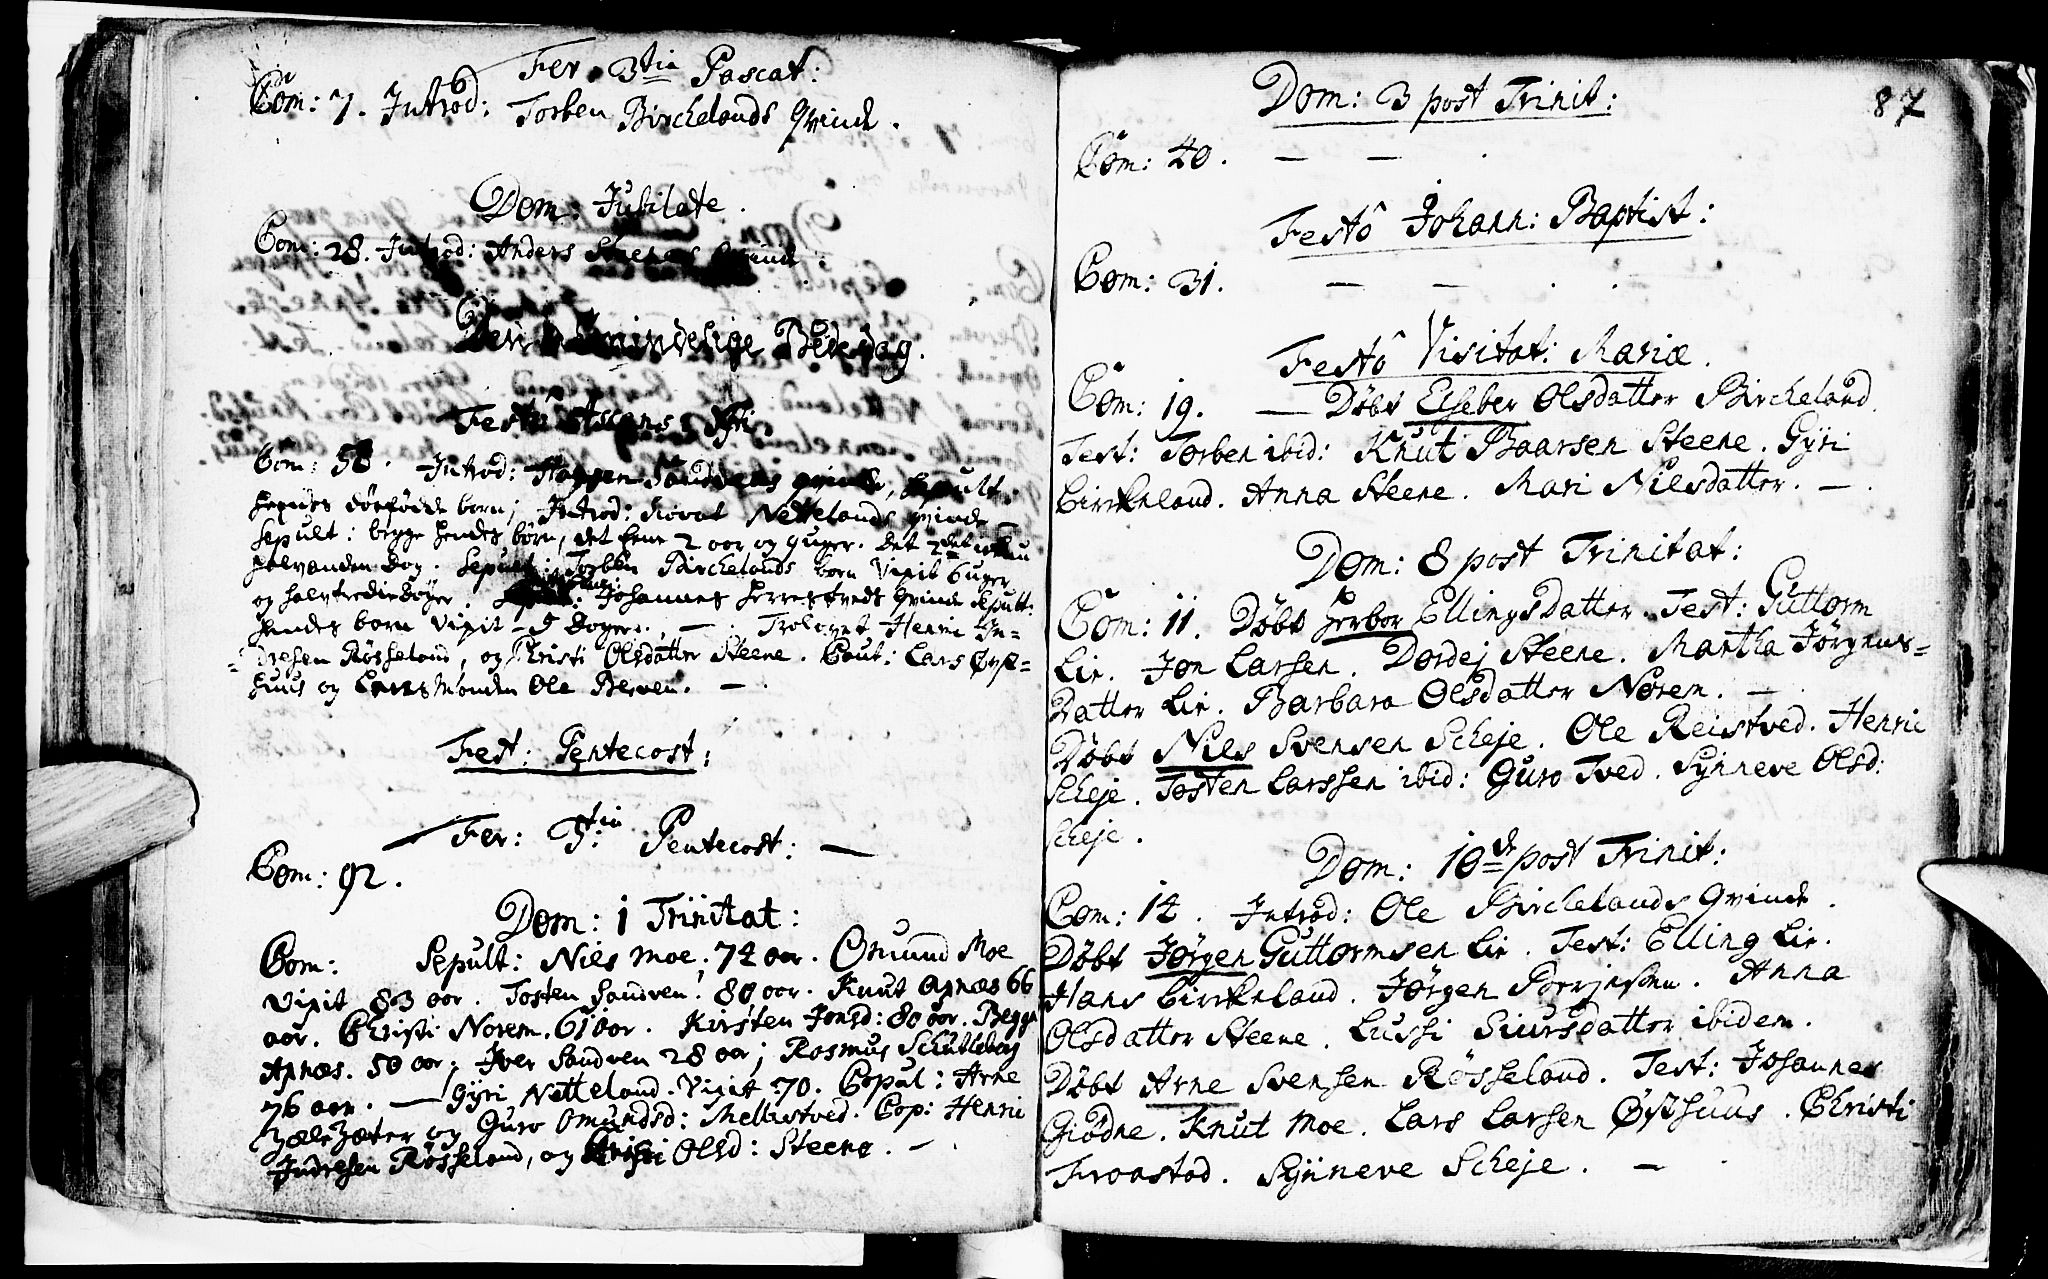 Fer. 3tia Pascat:
Com: 7. Introd: Torben Birchelands Qvinde.
Dom: Jubilate.
Com: 28. Introd: Anders Steenes Qvinde.
Den Almindelige Bededag.
Festo Ascens:
Com: 58. Introd: Sandvens qvinde, Sepult.
dødfødde born; Introd: Nettelands qvinde —
Sepult: begge hendes børn, det eene 2 aar og 9 uger. Det 2det
halvanden dag. Sepult: Torben Birchelands born Vixit 6 uger
og halvtredie dager. Johannes Herrestveds Qvinde Sepult:
hendes born Vixit 5 Doger. — Trolovet Henric In-
dresen Røsseland, og Christi Olsdatter Steene. Caut: Lars Øyst-
huus og Ole Berven. —
Fest: Pentecost:
Fer: 3tia Pentecost: —
Com: 92.
Dom: 1 Trinitat:
Com: Sepult: Niels Moe, 74 aar. Omund Moe
Vixit 83 aar. Tosten Sandven. 80 aar. Knut Axnæs 66
aar. Christi Norem. 61 aar. Kirsten Jonsd: 80 aar. Begga
Axnæs. 50 aar. Iver Sandven 28 aar; Rasmus
76 aar. — Gÿri Netteland. Vixit 70. Copul: Arne
og Guro Omundsd: Mellistved. Cop: Henric
Indresen Røsseland, og Christi Olsd: Steene. —
87
Dom: 3 post Trinit:
Com: 40. — —
Festô Johann: Baptist:
Com: 31. — —
Festô Visitat: Mariæ.
Com: 19. — Døbt Elseber Olsdatter Bircheland.
Test: Torben ibid: Knut Baarsen Steene. Gÿri
Birkeland. Anna Steene. Mari Nielsdatter. —
Dom: 8 post Trinitat:
Com: 11. Døbt Herbor EllingsDatter. Test: Guttorm
Lie. Jon Larsen. Dordej Steene. Martha Jørgens-
Datter Lie. Barbara Olsdatter Norem. —
Døbt Niels Svensen Scheje. Ole Reistved. Henric
Scheje. Tosten Larssen ibid: Guro Tved. Sÿnneve Olsd:
Scheje.
Dom: 10de post Trinit:
Com: 14. Introd: Ole Birchelands Qvinde.
Døbt Jørgen Guttormsen Lie. Test: Elling Lie.
Hans Birkeland. Jørgen. Anna
Olsdatter Steene. Lussi Siursdatter ibidem.
Døbt Arne Svensen Røsseland. Test: Johannes
Giødne. Knut Moe. Lars Larsen Østhuus. Christi
Froastad. Sÿnneve Scheje. —